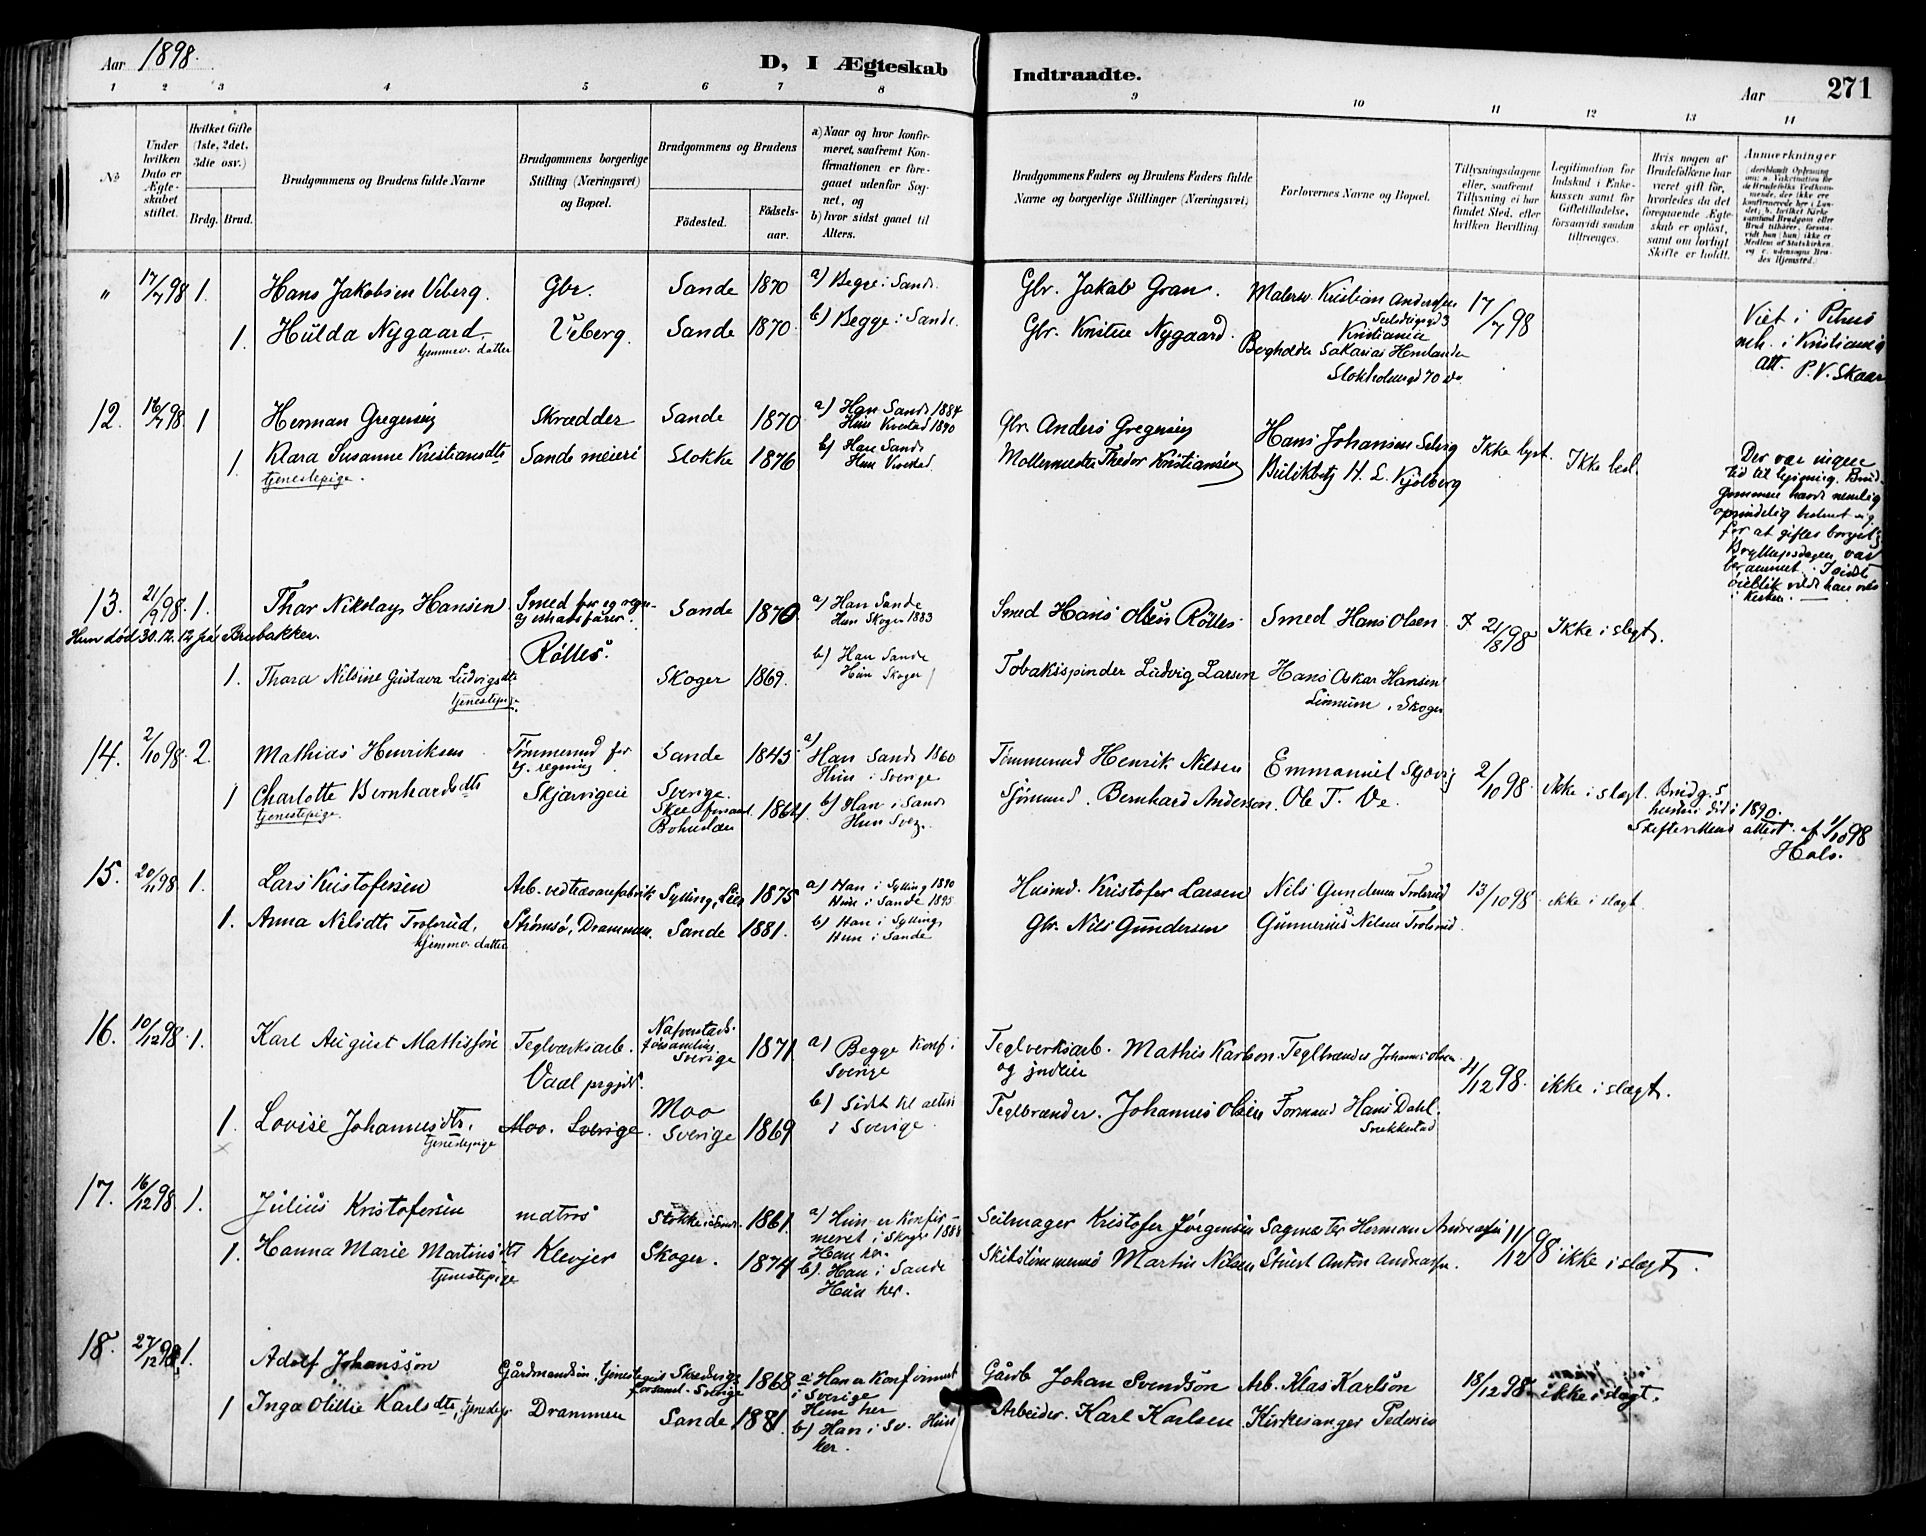 Aar 1898.
D, I Ægteskab
Indtraadte.
Aar
271
1 2 3 4 5 6 7 8 9 10 11 12 13 14
No
Under hvilken Dato er Ægteskabet stiftet.
Hvilket Gifte (1ste, 2det, 3die osv.)
Brdg. Brud.
Brudgommens og Brudens fulde Navne
Brudgommens borgerlige Stilling (Næringsvei) og Bopæl.
Brudgommens og Brudens
Födested.
Födselsaar.
a) Naar og hvor konfirmeret, saafremt Konfirmationen er foregaaet udenfor Sognet, og
b) hvor sidst gaaet til Alters.
Brudgommens Faders og Brudens Faders fulde Navne og borgerlige Stillinger (Næringsvei)
Forlovernes Navne og Bopæl.
Tillysningsdagene eller, saafremt Tillysning ei har fundet Sted, efter hvilken Bevilling
Legitimation for Indskud i Enkekassen samt for Giftetilladelse, forsaavidt saadan tiltrænges.
Hvis nogen af Brudefolkene har været gift før, hvorledes da det foregaaende Ægteskab er opløst, samt om lovligt Skifte er holdt.
Anmærkninger
" 17/7 98 1. Hans Jakobsen Viberg. Gbr. Sande 1870 a) Begge i Sande. Gbr. Jakob Gran. Malersv. Kristian Andersen
Kristiania 17/7 98 Viet i Petrus
1. Hulda Nygaard, Viberg. Sande 1870 b) Begge i Sande. Gbr. Kristen Nygaard.
hjemmev. datter
Kristiania
att. P. V. Skaar
12. 16/7 98 1 Herman Gregersen Skrædder Sande 1870 a) Han Sande 1884
Hun Kvestad 1890 Gbr Anders Gregersen Hans Johansen Selvig Ikke lyst. Ikke besl.
1. Klara Susanne Kristiansdtr Sande meieri Stokke 1876 b) Han Sande
Møllemester Thedor Kristiansen H. L. Kjølberg
tjenestepige.
Der var ingen
tid til lysning. Brud-
gommen havde nemlig
oprindelig bestemt sig
for at giftes borgerl.
Bryllupsdagen var
berammet. I sidste
øieblik vilde han vies
i kirken.
13. 21/9 98. 1. Thar Nikolays Hansen. Smed for eg regn- Sande 1870 a) Han Sande
Hun Skoger 1883 Smed Hans Olsen Röttes Smed Hans Olsen 21/8 98 Ikke i slegt.
Hun död 30.12.12 paa Brubakken.
Röttes.
1. Thara Nilsine Gustava Ludvigsdtr Skoger 1869. b) Han Sande
Hun Skoger Tobakspinder Ludvig Larsen Hans Oskar Hansen
tjenestepige Linnum i Skoger
14. 2/10 98 2. Mathias Henriksen Tømmermd for
eg. regning Sande 1845 a) Han Sande 1860
Hun i Sverige Tömmermd Henrik Nilsen Emmanuel Skjøvig 2/10 98. ikke i slægt. Brudg.s
1 Charlotte Bernhardsdtr Skjærvigen Sverige.
Skee forsaml.
Bohuslän 1864 b) Han i Sande
Hun Sverg. Sjömand. Bernhard Anderson. Ole T. Ve.
tjenestepige.
hustru död i 1890.
Skifterettens attest af 1/10 98
Hals.
15. 20/11 98. 1. Lars Kristofersen Arb. ved trævarefabrik Sylling, Lier 1875 a) Han i Sylling 1890
Hun i Sande 1895 Husmd. Kristofer Larsen Nils Gundersen Trolerud 13/10 98 ikke i slægt
1. Anna Nilsdtr Trolerud, Strømsö, Drammen. Sande 1881. b) Han i Sylling
Hun i Sande Gbr. Nils Gundersen Gunnerius Nilsen Trolerud.
hjemmev. datter
16. 10/12 98. 1. Karl August Mattisson Teglværksarb. Nafverstads-
församling
Sverige 1871 a) Begge konf i
Sverige Teglverksarb. Mathis Karlson. Teglbrænder Johannes Olsen
og jordeier 4/12 98. ikke i slægt.
Vaal prgjld.
1. Lovise Johannesdtr. Moo. Sverige. Moo
Sverige 1869 b) Sidst til alters
i Sverige. Teglbrænder. Johannes Olsen Formand Hans Dahl.
tjenestepige Snekkestad
17. 16/12 98. 1. Julius Kristofersen matros Stokke i Sande. 1861. a) Hun er konfir-
meret i Skoger 1888
Han her. Seilmager Kristofer Jørgensen Sagmester Herman Andreasen 11/12 98 ikke i slægt.
1. Hanna Marie Martinsdtr Klevjer Skoger. 1874 b). Han i Sande
Hun her. Skibstömmermd Martin Nilsen Stuert Anton Andreasen.
tjenestepige
18. 27/12 98. 1. Adolf Johansson Gårdmandssön, tjenestegut Skredvigs
forsaml. Sverige 1868 a Han er konfirmeret
i Sverige
Hun her Gårdb Johan Svendson Arb. Klas Karlson 18/12 98 ikke i slægt.
1 Inga Otillie Karlsdtr, tjenestepi. Drammen Sande 1881 b) Han i Sv. Hun
her. Arbeider. Karl Karlsen Kirkesanger Pedersen